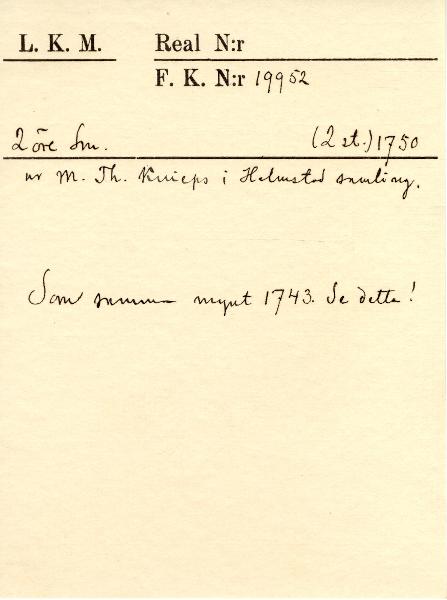 L. K. M. Real N:r
F. K. N:r 19952
2 öre Sm. (2 st.) 1750
ur M. Th. Knieps i Helmstad samling.
Som samma mynt 1743. Se detta!